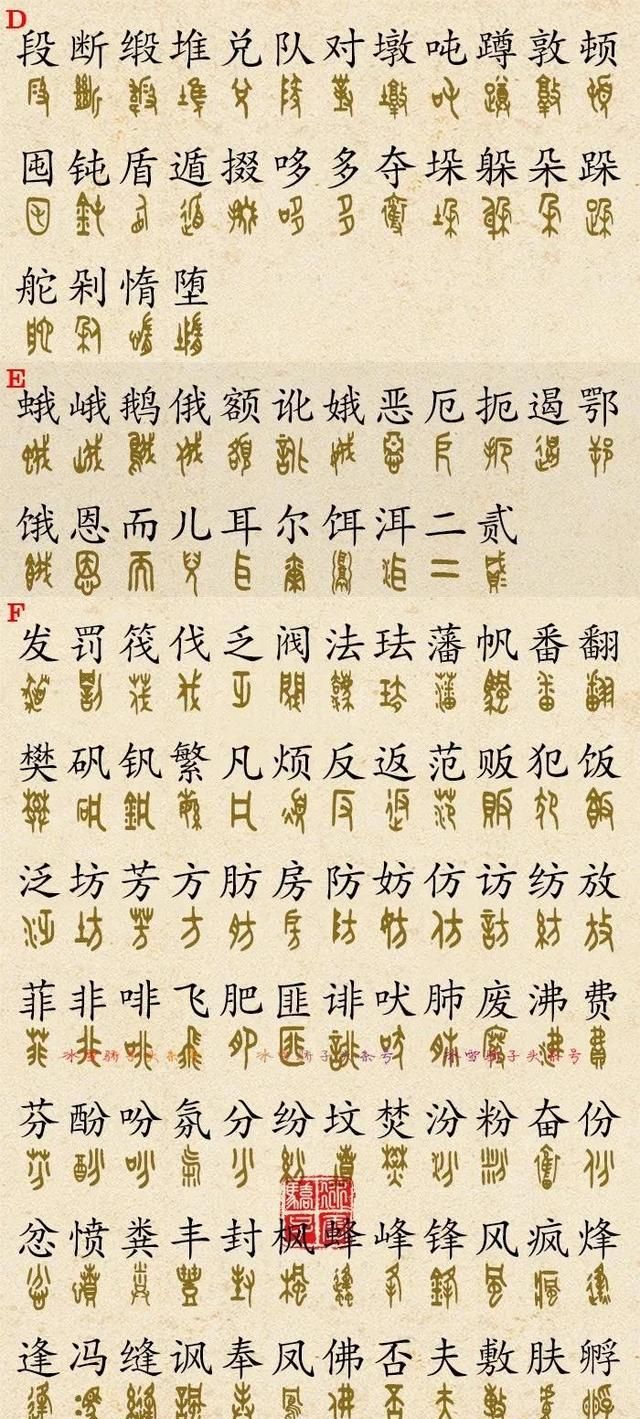 D
段断缎堆兑队对墩吨蹲敦顿
囤钝盾遁掇哆多夺垛躲朵跺
舵剁惰堕
E
蛾峨鹅俄额讹娥恶厄扼遏鄂
饿恩而儿耳尔饵洱二贰
F
发罚筏伐乏阀法珐藩帆番翻
樊矾钒繁凡烦反返范贩犯饭
泛坊芳方肪房防妨仿访纺放
菲非啡飞肥匪诽吠肺废沸费
冰雪骄子头条号 冰雪骄子头条号 冰雪骄子头条号
芬酚吩氛分纷坟焚汾粉奋份
忿愤粪丰封枫蜂峰锋风疯烽
逢冯缝讽奉凤佛否夫敷肤孵